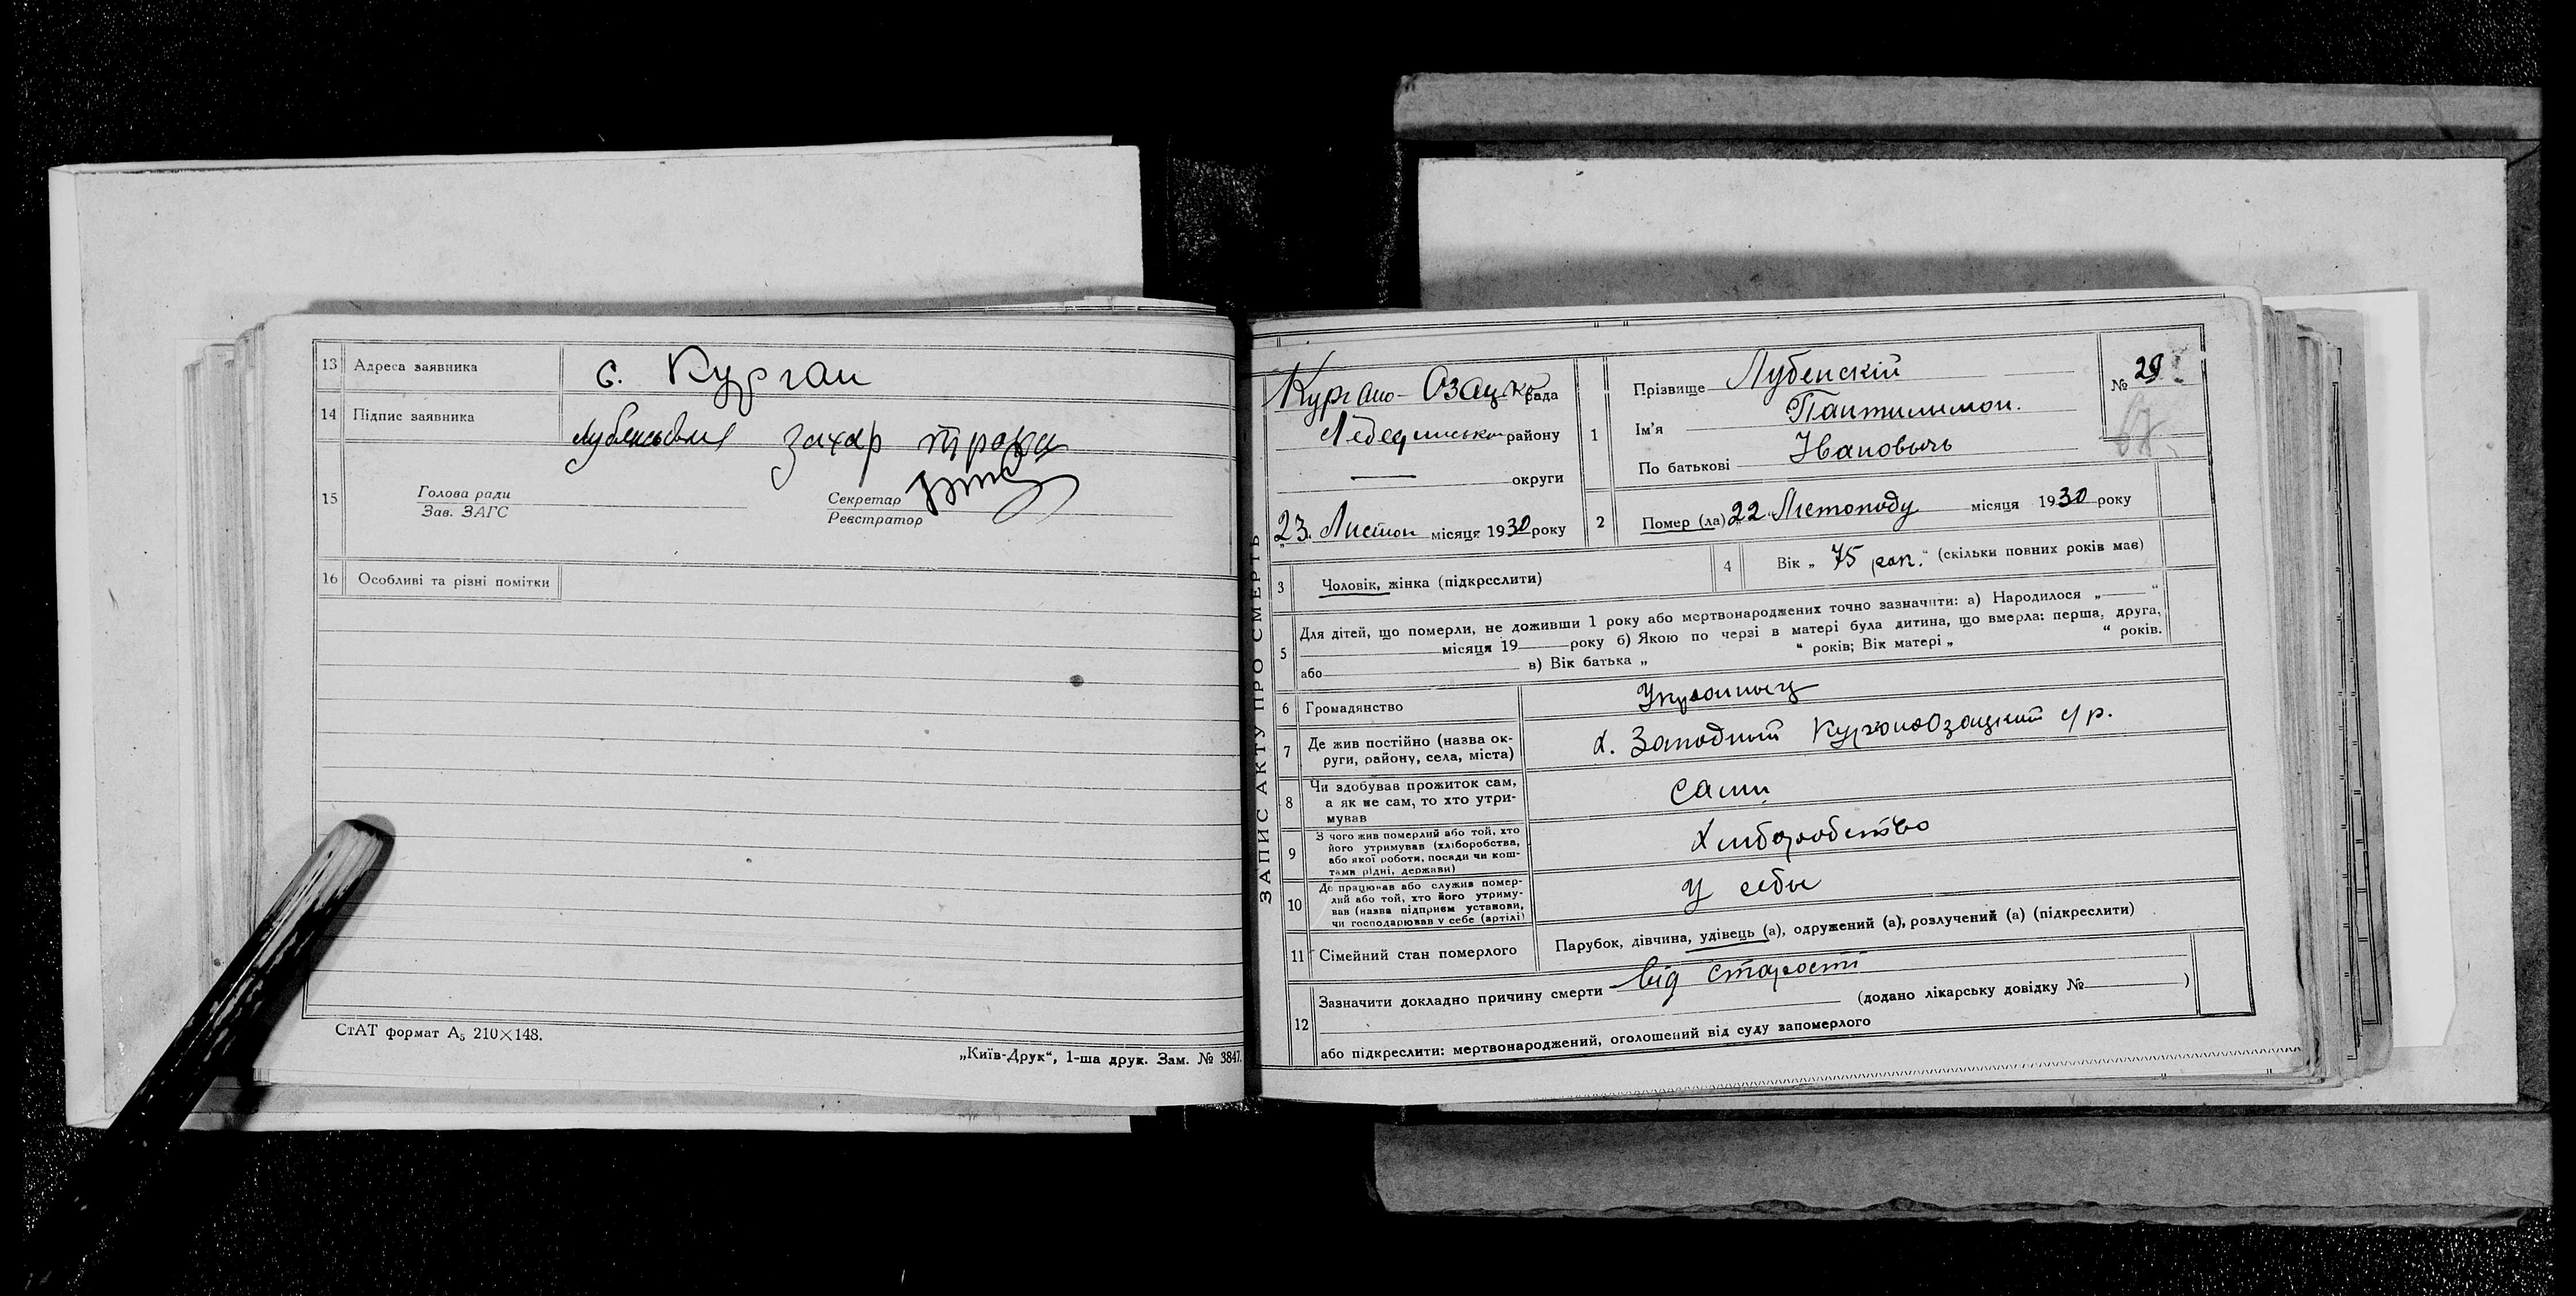 13 Адреса заявника с. Курган
14 Підпис заявника Захар
15 Голова ради
Зав. ЗАГС
Секретар
Реєстратор
16 Особливі та різні помітки
СтАТ формат А5 210×148.
„Київ-Друк“, 1-ша друк. Зам. № 3847.
ЗАПИС АКТУ ПРО СМЕРТЬ
Кургано-Озацька рада
Лебединсько району
— округи
„23. Листоп місяця 1930 року
1 Прізвище Лубенскій
Ім'я Пантилимон.
По батькові Ивановычь
№ 29
2 Помер (ла) „22“ Листопаду місяця 1930 року
3 Чоловік, жінка (підкреслити)
4 Вік „ 75 рок. “ (скільки повних років має)
5 Для дітей, що померли, не доживши 1 року або мертвонароджених точно зазначити: а) Народилося „— “
місяця 19 року б) Якою по черзі в матері була дитина, що вмерла: перша, друга,
або в) Вік батька „ “ років; Вік матері „ “ років.
6 Громадянство Украинец
7 Де жив постійно (назва ок-
руги, району, села, міста)
х. Западный КурганоОзацкий с/р.
8 Чи здобував прожиток сам,
а як не сам, то хто утри-
мував
сами
9 З чого жив померлий або той, хто
його утримував (хліборобства,
або якої роботи, посади чи кош-
тами рідні, держави)
Хлиборобство
10 Де працював або служив помер-
лий або той, хто його утриму-
вав (назва підприєм установи,
чи господарював у себе (артілі)
У себы
11 Сімейний стан померлого Парубок, дівчина, удівець (а), одружений (а), розлучений (а) (підкреслити)
12 Зазначити докладно причину смерти від старости
(додано лікарську довідку № )
або підкреслити: мертвонароджений, оголошений від суду запомерлого